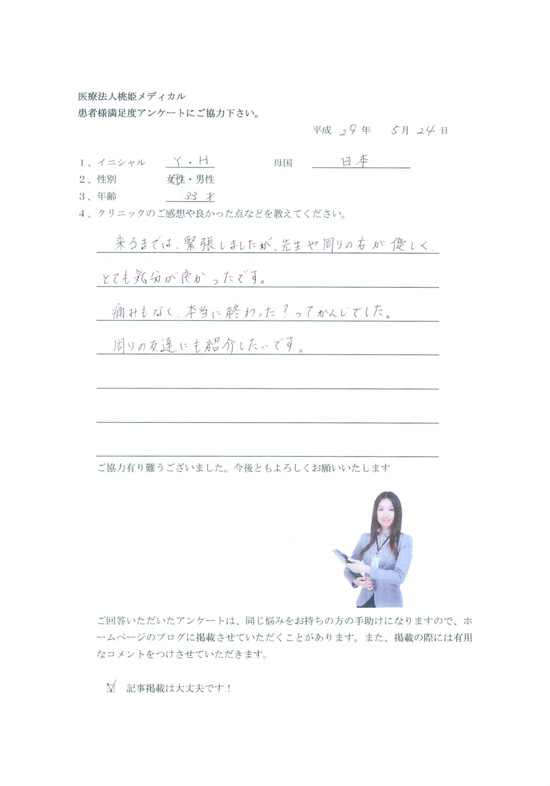 医療法人桃姫メディカル
患者様満足度アンケートにご協力下さい。
平成 29 年 5月 24 日
1、イニシャル Y・H 母国 日本
2、性別 女性・男性
3、年齢 33 才
4、クリニックのご感想や良かった点などを教えてください。
来るまでは、緊張しましたが、先生や周りの方が優しく、
とても気分が良かったです。
痛みもなく、本当に終わった?ってかんじでした。
周りの友達にも紹介したいです。
ご協力有り難うございました。今後ともよろしくお願いいたします
ご回答いただいたアンケートは、同じ悩みをお持ちの方の手助けになりますので、ホ
ームページのブログに掲載させていただくことがあります。また、掲載の際には有用
なコメントをつけさせていただきます。
☑ 記事掲載は大丈夫です!